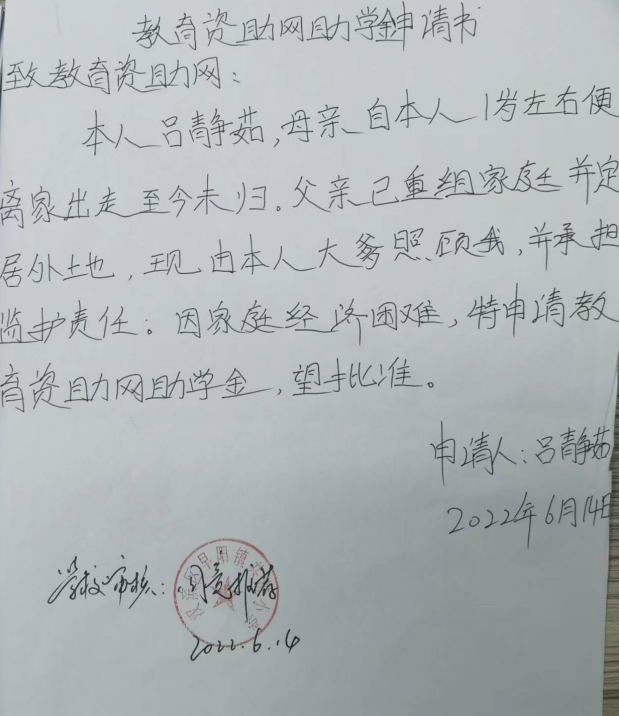 教育资助网助学金申请书
致教育资助网：
本人吕静茹，母亲自本人1岁左右便
离家出走至今未归。父亲已重组家庭并定
居外土地，现由本人大爹照顾我，并承担
监护责任。因家庭经济困难，特申请教
育资助网助学金，望批准。
申请人：吕静茹
2022年6月14日
学校审核：同意推荐
旱阳镇
2022.6.14